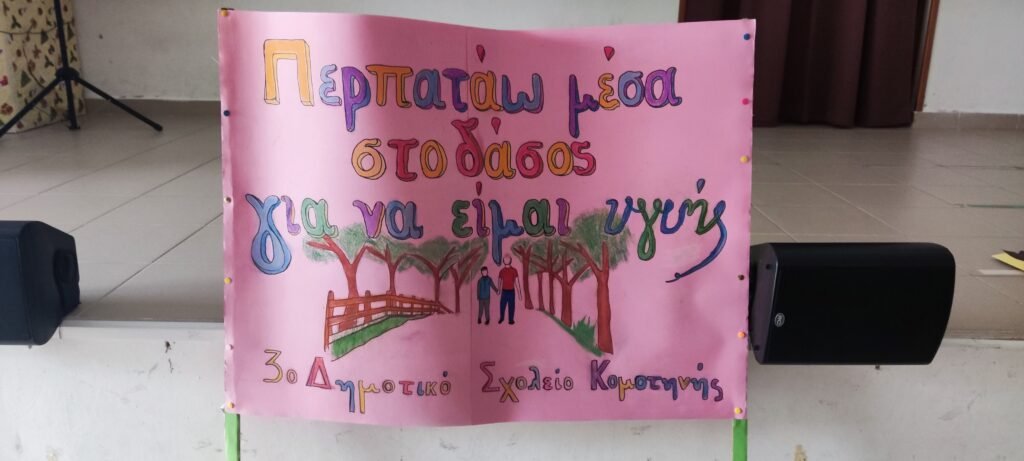 Περπατάω μέσα
στο δάσος
για να είμαι υγιής
3ο Δημοτικό Σχολείο Κομοτηνής